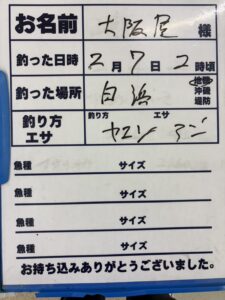 お名前 大阪屋 様
釣った日時 2月7日2時頃
釣った場所 白浜 地磯 沖磯 堤防
釣り方 エサ 釣り方 ヤエン エサ アジ
魚種 サイズ
魚種 サイズ
魚種 サイズ
魚種 サイズ
お持ち込みありがとうございました。